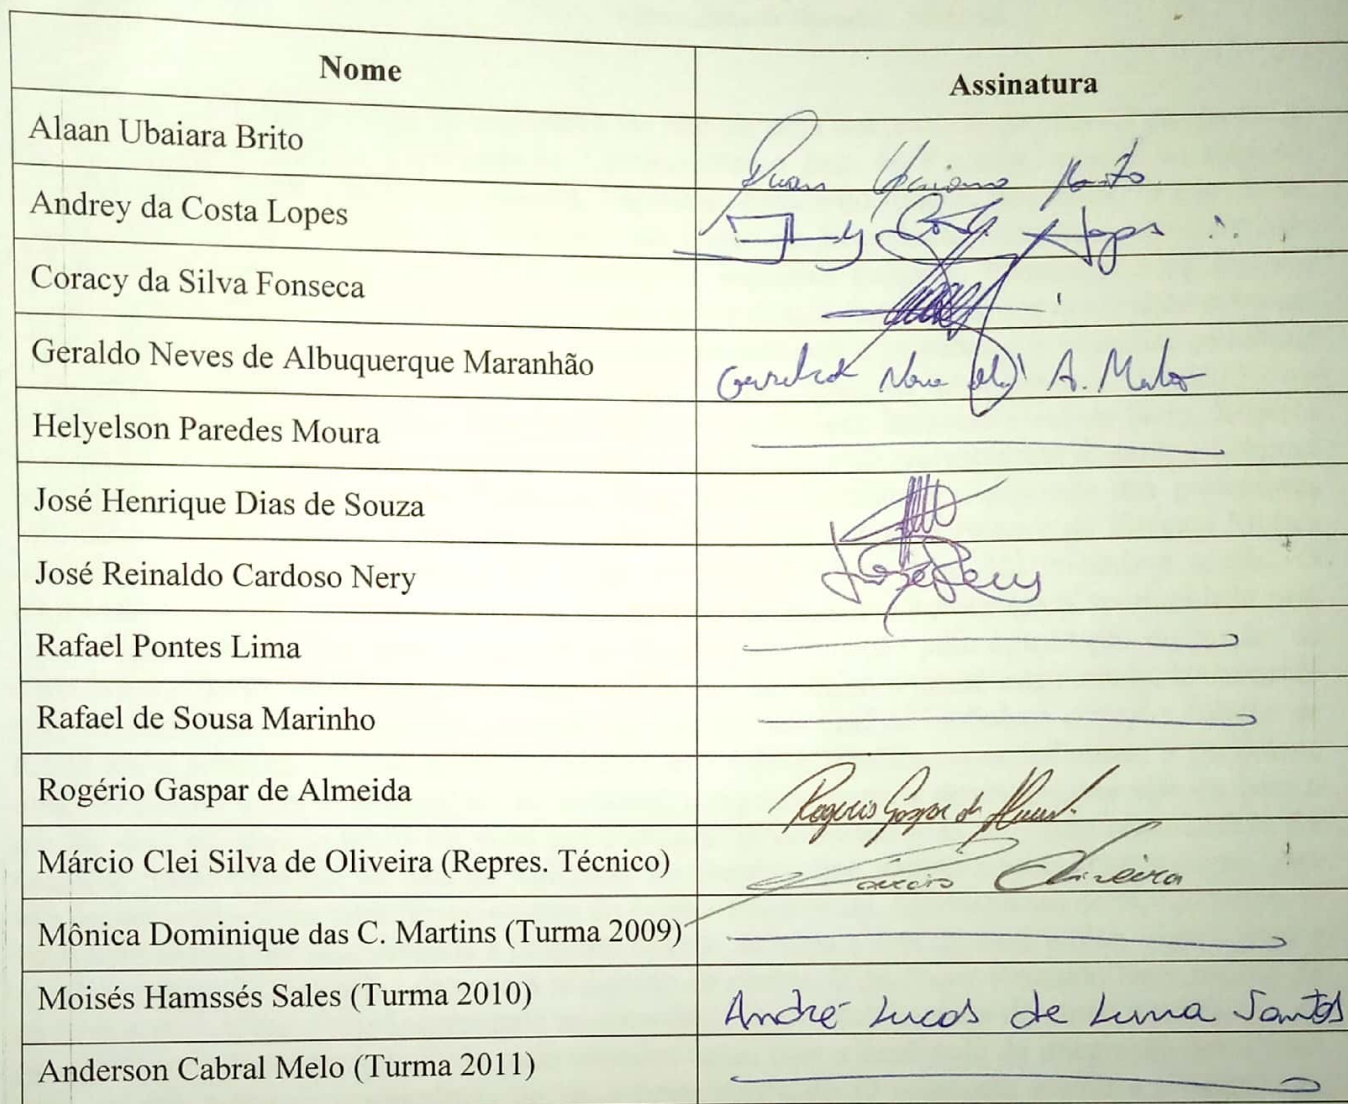 Nome Assinatura
Alaan Ubaiara Brito
Andrey da Costa Lopes
Coracy da Silva Fonseca
Geraldo Neves de Albuquerque Maranhão
Helyelson Paredes Moura
José Henrique Dias de Souza
José Reinaldo Cardoso Nery
Rafael Pontes Lima
Rafael de Sousa Marinho
Rogério Gaspar de Almeida Rogerio Gaspar de
Márcio Clei Silva de Oliveira (Repres. Técnico) Oliveira
Mônica Dominique das C. Martins (Turma 2009)
Moisés Hamssés Sales (Turma 2010) André Lucas de Luma Santos
Anderson Cabral Melo (Turma 2011)